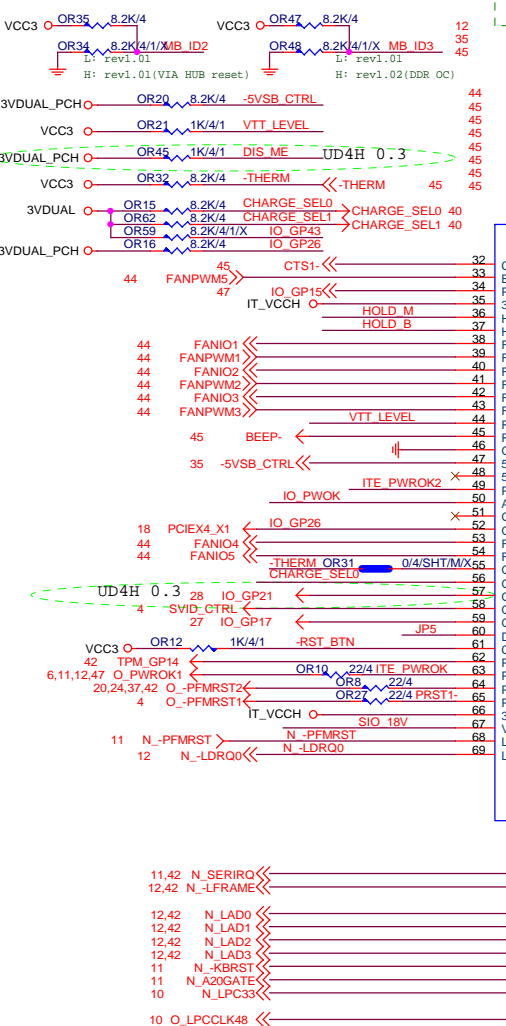 OR35 8.2K/4 OR47 8.2K/4
VCC3 VCC3 12
35
OR34 8.2K/4/1/X MB_ID2 OR48 8.2K/4/1/X MB_ID3 45
L: rev1.01 L: rev1.01
H: rev1.01(VIA HUB reset) H: rev1.02(DDR OC)
3VDUAL_PCH OR20 8.2K/4 -5VSB_CTRL 44
45
VCC3 OR21 1K/4/1 VTT_LEVEL 45
45
3VDUAL_PCH OR45 1K/4/1 DIS_ME UD4H 0.3 45
45
VCC3 OR32 8.2K/4 -THERM -THERM 45 45
3VDUAL OR15 8.2K/4 CHARGE_SEL0 CHARGE_SEL0 40
OR62 8.2K/4 CHARGE_SEL1 CHARGE_SEL1 40
OR59 8.2K/4/1/X IO_GP43
3VDUAL_PCH OR16 8.2K/4 IO_GP26
45 CTS1- 32
44 FANPWM5 33
47 IO_GP15 34
IT_VCCH 35
HOLD_M 36
HOLD_B 37
44 FANIO1 38
44 FANPWM1 39
44 FANIO2 40
44 FANPWM2 41
44 FANIO3 42
44 FANPWM3 43
VTT_LEVEL 44
45 BEEP- 45
46
35 -5VSB_CTRL 47
48
ITE_PWROK2 49
IO_PWOK 50
51
18 PCIEX4_X1 IO_GP26 52
44 FANIO4 53
44 FANIO5 54
-THERM OR31 0/4/SHT/M/X 55
CHARGE_SEL0 56
UD4H 0.3 28 IO_GP21 57
4 SVID_CTRL 58
27 IO_GP17 59
JP5 60
VCC3 OR12 1K/4/1 -RST_BTN 61
42 TPM_GP14 62
6,11,12,47 O_PWROK1 OR10 22/4 ITE_PWROK 63
20,24,37,42 O_-PFMRST2 OR8 22/4 64
4 O_-PFMRST1 OR27 22/4 PRST1- 65
IT_VCCH 66
SIO_18V 67
11 N_-PFMRST N_-PFMRST 68
12 N_-LDRQ0 N_-LDRQ0 69
11,42 N_SERIRQ
12,42 N_-LFRAME
12,42 N_LAD0
12,42 N_LAD1
12,42 N_LAD2
12,42 N_LAD3
11 N_-KBRST
11 N_A20GATE
10 N_LPC33
10 O_LPCCLK48